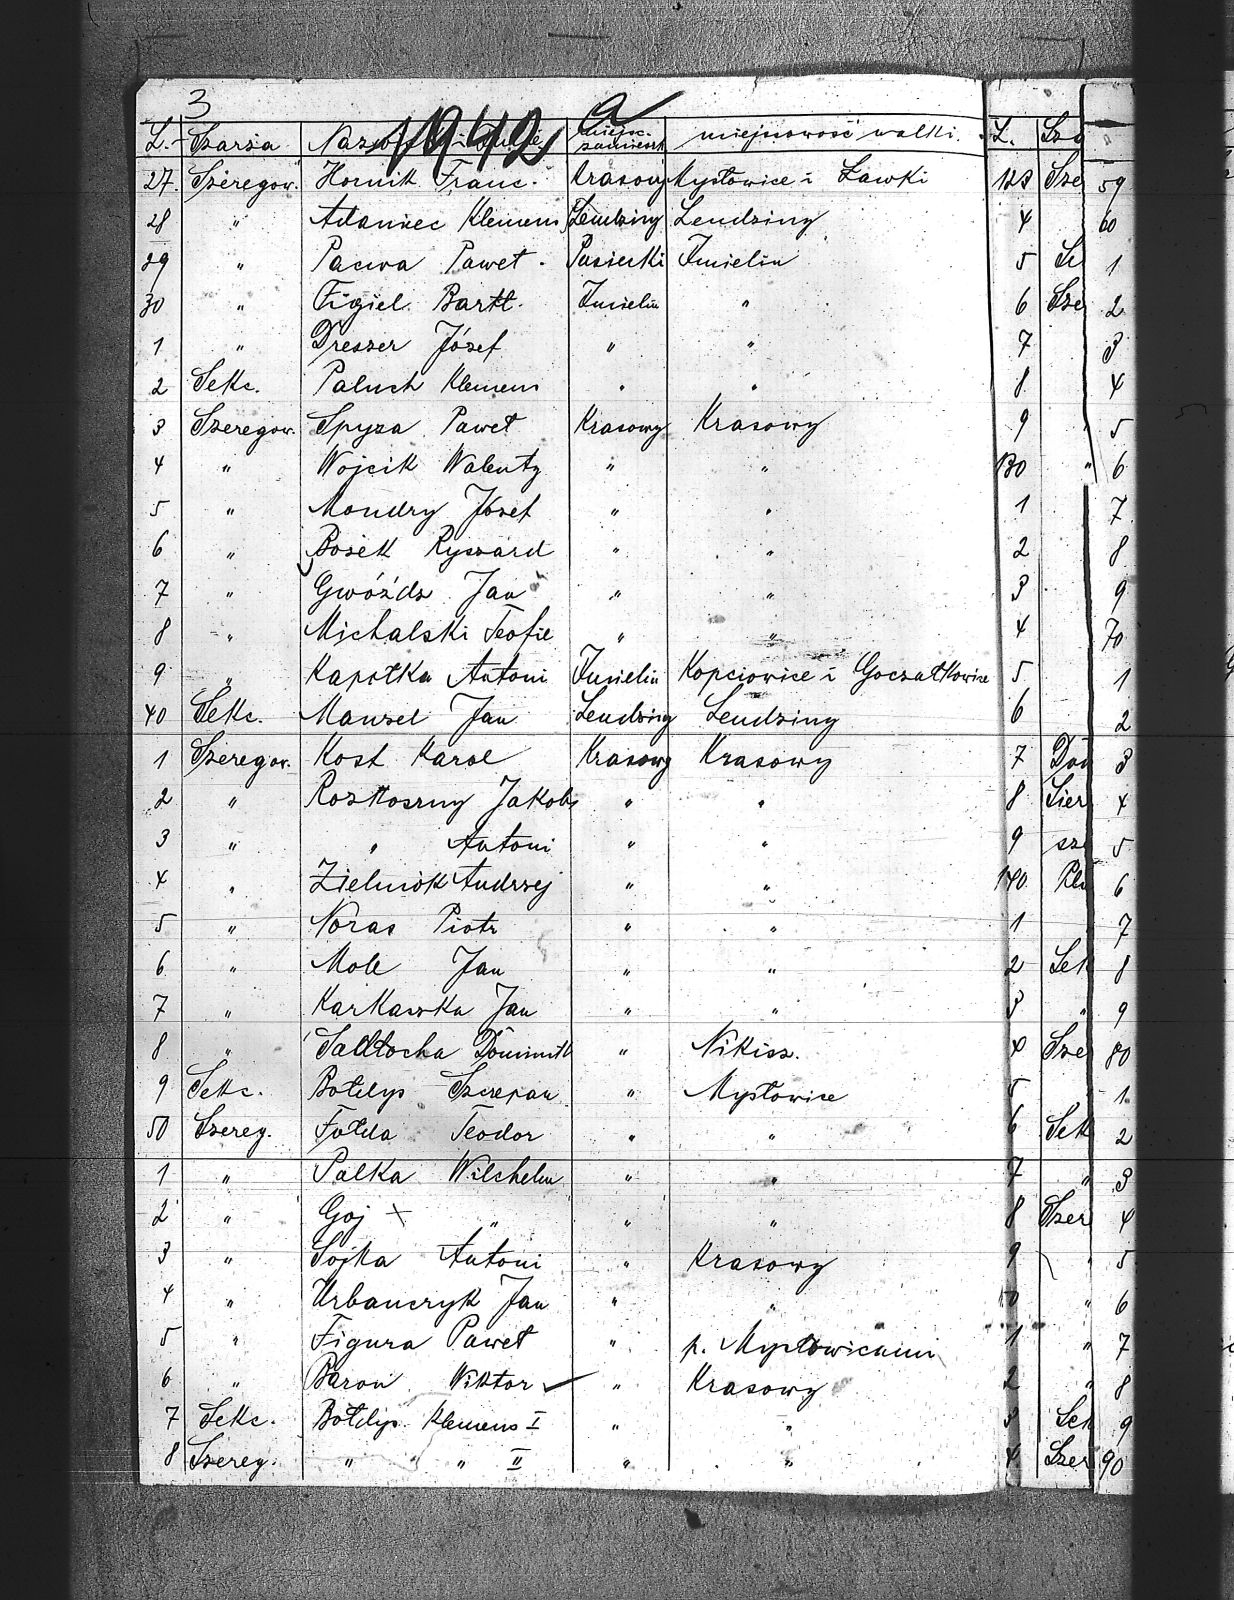 3
1942 a
L. Szarża Nazwisko i Imię miejsc. zamieszk. miejscowość walki. L. Sza
27. Szeregow. Hornik Franc. Krasowy Mysłowice i Ławki 123 Sze 59
28 " Adamiec Klemens Lendziny Lendziny 4 60
29 " Pacwa Paweł. Pasieczki Imielin 5 1
30 " Figiel Bartł. Imielin " 6 Sze 2
1 " Dreszer Józef " " 7 3
2 Sekc. Paluch Klemens " " 8 4
3 Szeregow. Spyra Paweł Krasowy Krasowy 9 5
4 " Wojcik Walenty " " 130 " 6
5 " Mondry Józef " " 1 7
6 " Bosek Ryszard " " 2 8
7 " Gwóźdz Jan " " 3 9
8 " Michalski Teofil " " 4 70
9 " Kapołka Antoni Imielin Kopciowice i Goczałkowice 5 1
40 Sekc. Manzel Jan Lendziny Lendziny 6 2
1 Szeregow. Kost Karol Krasowy Krasowy 7 3
2 " Rozkoszny Jakob " " 8 Sier 4
3 " " Antoni " " 9 sze 5
4 " Zielniok Andrzej " " 140 6
5 " Noras Piotr " " 1 7
6 " Mole Jan " " 2 Sek 8
7 " Karkawka Jan " " 3 " 9
8 " Dominik " Nikisz. 4 Sze 80
9 Sekc. Bołdys Szczepan " Mysłowice 5 1
50 Szereg. Fołda Teodor " " 6 Sek 2
1 " Palka Wilchelm " " 7 " 3
2 " Goj × " " " 8 Szer 4
3 " Sojka Antoni " Krasowy 9 " 5
4 " Urbanczyk Jan " " 50 " 6
5 " Figura Paweł " p. Mysłowicami 1 " 7
6 " Baron Wiktor " Krasowy 2 " 8
7 Sekc. Bołdys Klemens I " " 3 Sek 9
8 Szereg. " " " II " " 4 Szer 90